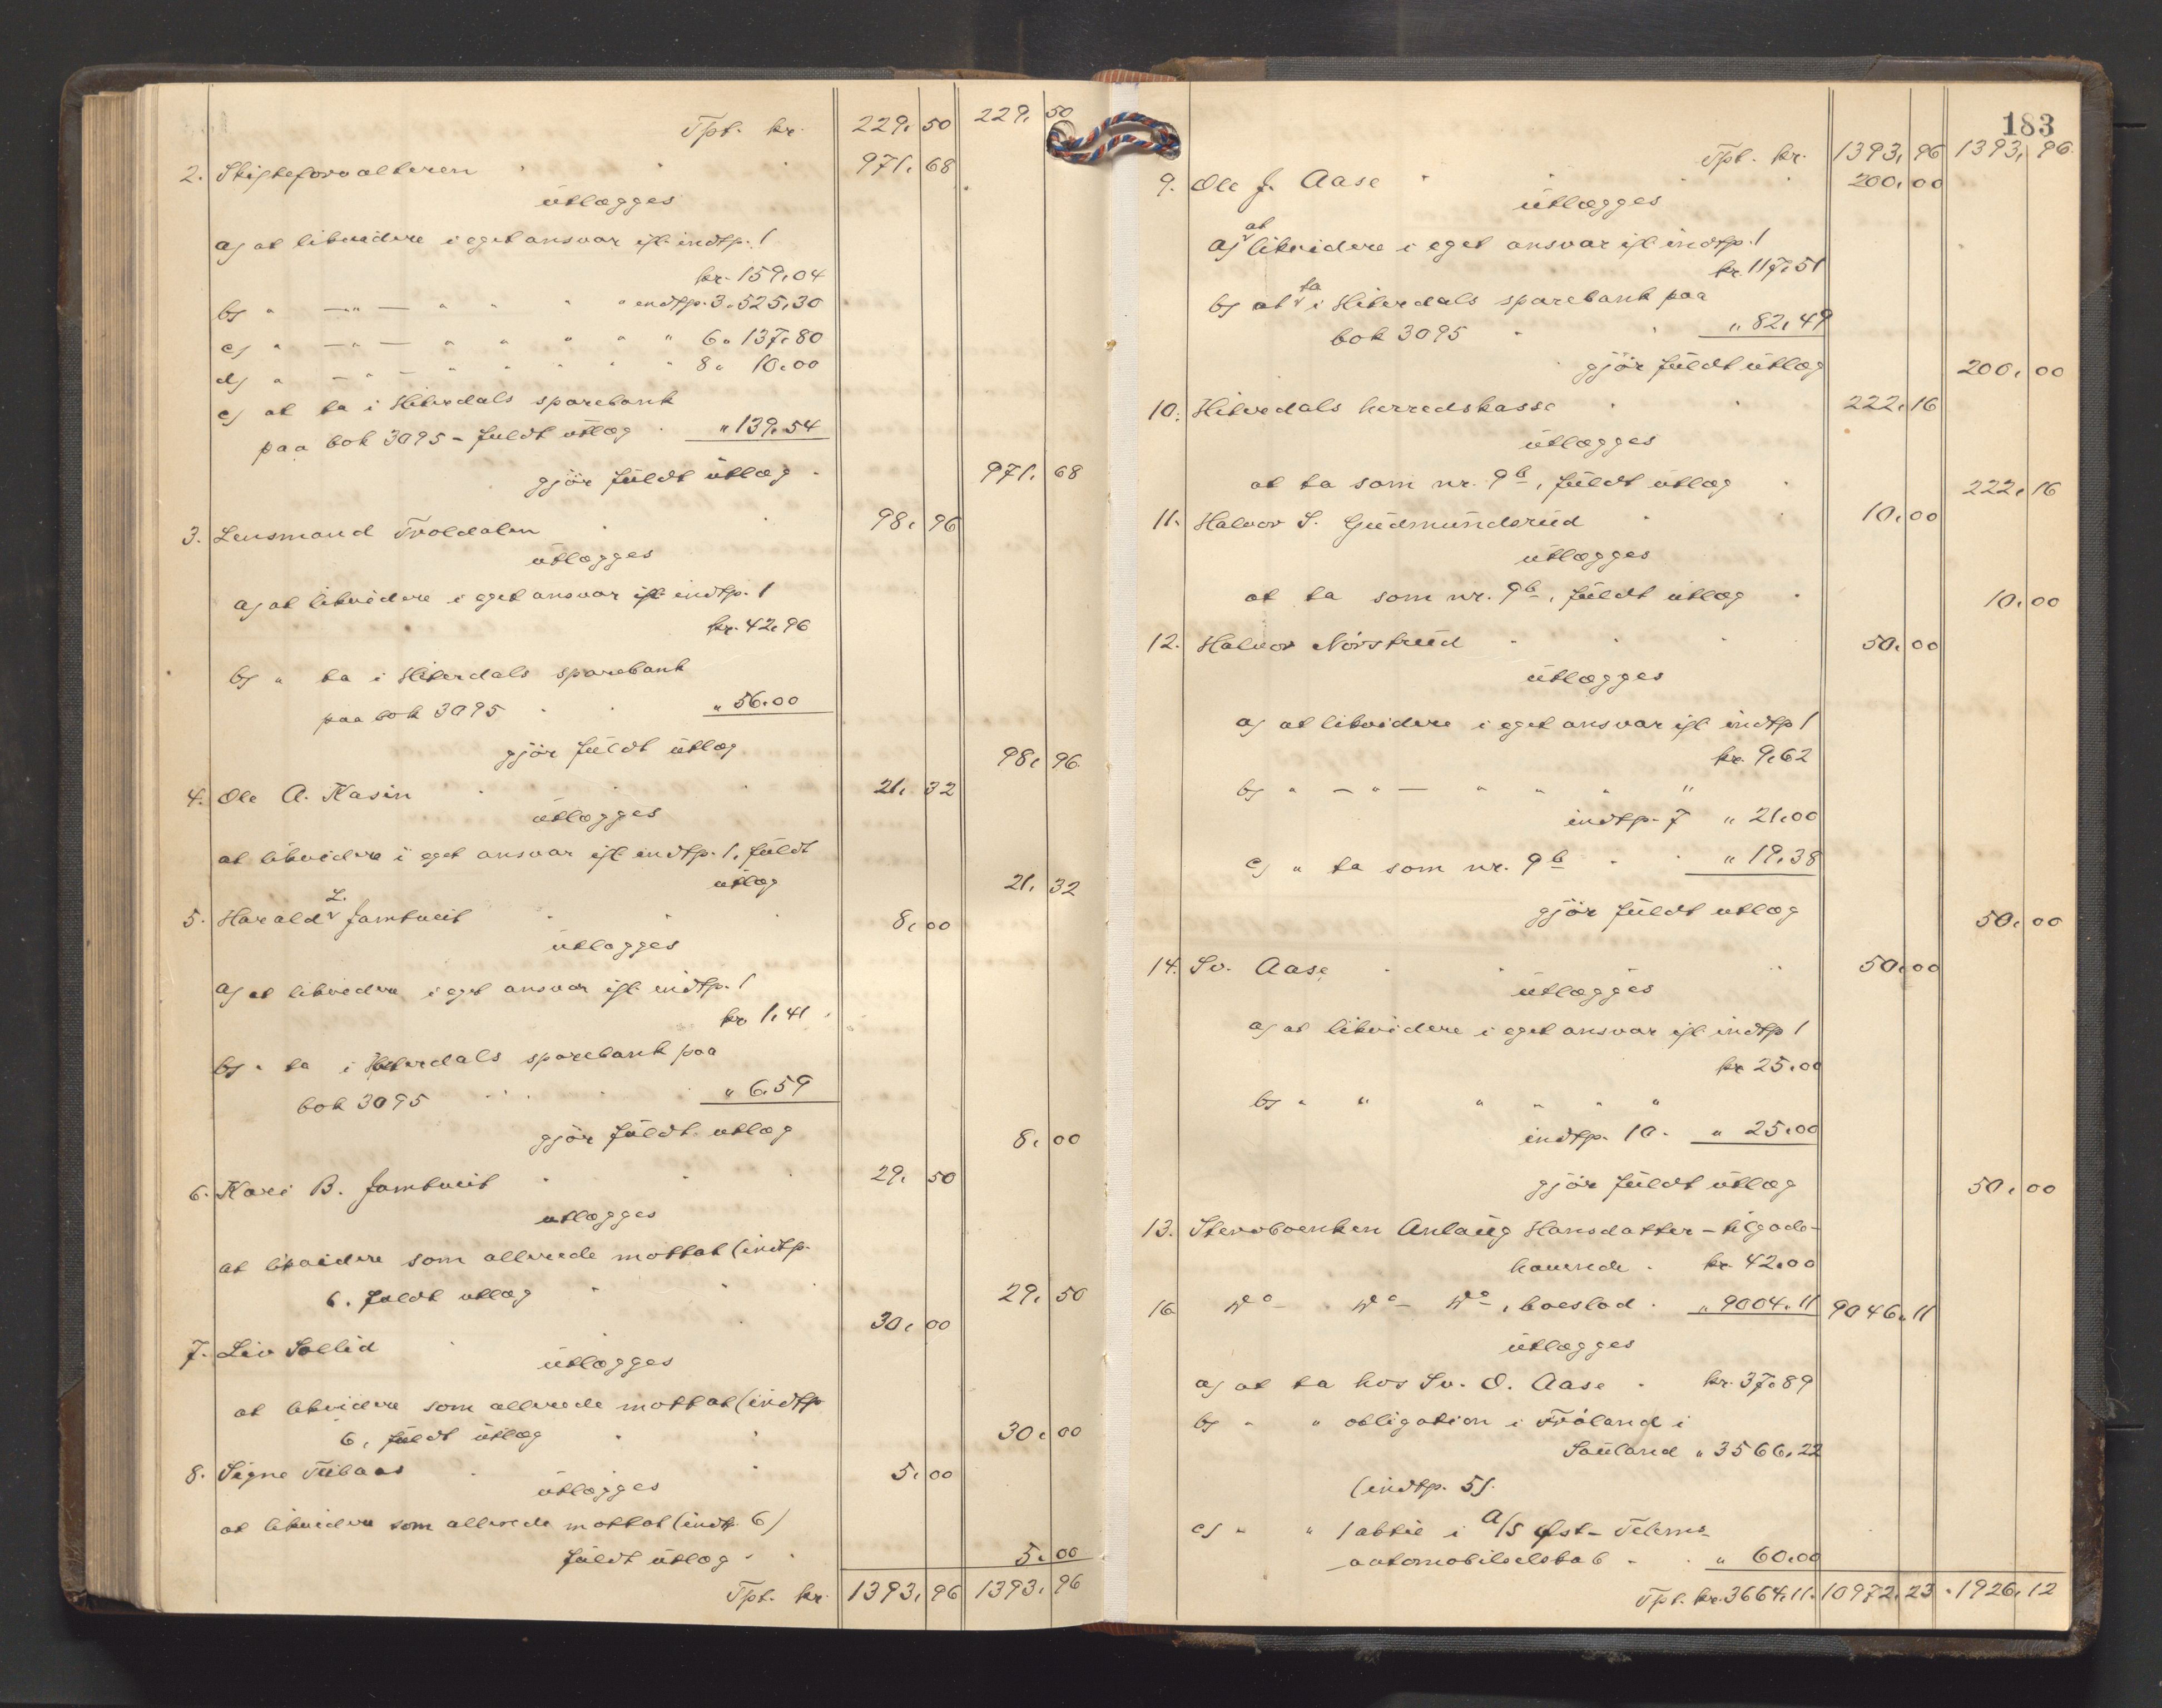 Tpt. kr. 229,50 229,50
2. Skifteforvalteren 971,68
utlægges
a) at likvidere i eget ansvar ifl. indtp. 1
kr. 159,04
b) " —"— " " " " indtp. 3 " 525,30
c) " —"— " " " " " 6 " 137,80
d) " —"— " " " " " 8 " 10,00
e) at ta i Hiterdals sparebank
paa bok 3095 - fuldt utlæg " 139,54
gjør fuldt utlæg 971,68
3. Lensmand Troldalen 98,96
utlægges
a) at likvidere i eget ansvar ifl. indtp. 1
kr. 42,96
b) " ta i Hiterdals sparebank
paa bok 3095 " 56,00
gjør fuldt utlæg 98,96
4. Ole A. Kasin 21,32
utlægges
at likvidere i eget ansvar ifl. indtp. 1, fuldt
utlæg 21,32
5. Harald L. Jamtveit 8,00
utlægges
a) at likvidere i eget ansvar ifl. indtp. 1
kr. 1,41
b) " ta i Hiterdals sparebank paa
bok 3095 " 6,59
gjør fuldt utlæg 8,00
6. Kari B. Jamtveit 29,50
utlægges
at likvidere som allerede mottat (indtp.
6. fuldt utlæg 29,50
7. Liv Sollid 30,00
utlægges
at likvidere som allerede mottat (indtp
6, fuldt utlæg 30,00
8. Signe 5,00
utlægges
at likvidere som allerede mottat (indtp. 6)
fuldt utlæg 5,00
Tpt. kr. 1393,96 1393,96
183
Tpt. kr. 1393,96 1393,96
9. Ole J. Aase 200,00
utlægges
a) at likvidere i eget ansvar ifl. indtp. 1
kr. 117,51
b) at ta i Hiterdals sparebank paa
bok 3095 " 82,49
gjør fuldt utlæg 200,00
10. Hiterdals herredskasse 222,16
utlægges
at ta som nr. 9b, fuldt utlæg 222,16
11. Halvor S. Gudmundsrud 10,00
utlægges
at ta som nr. 9b, fuldt utlæg 10,00
12. Halvor Nørstrud 50,00
utlægges
a) at likvidere i eget ansvar ifl. indtp 1
kr. 9,62
b) " —"— " " " "
indtp. 7 " 21,00
c) " ta som nr. 9b " 19,38
gjør fuldt utlæg 50,00
14. Sv. Aase 50,00
utlægges
a) at likvidere i eget ansvar ifl. indtp 1
kr 25,00
b) " " " " " "
indtp. 10. " 25,00
gjør fuldt utlæg 50,00
13. Stervboenken Anlaug Hansdatter - tilgode-
havende kr. 42,00
16 do do do, boeslod " 9004,11 9046,11
utlægges
a) at ta hos Sv. O. Aase kr. 37,89
b) " " obligation i Frøland i
Sauland " 3566,22
(indtp. 5).
c) " " 1 aktie i A/S Øst-Telems
automobilselskab " 60,00
Tpt. kr. 3664,11. 10972,23 1926,12